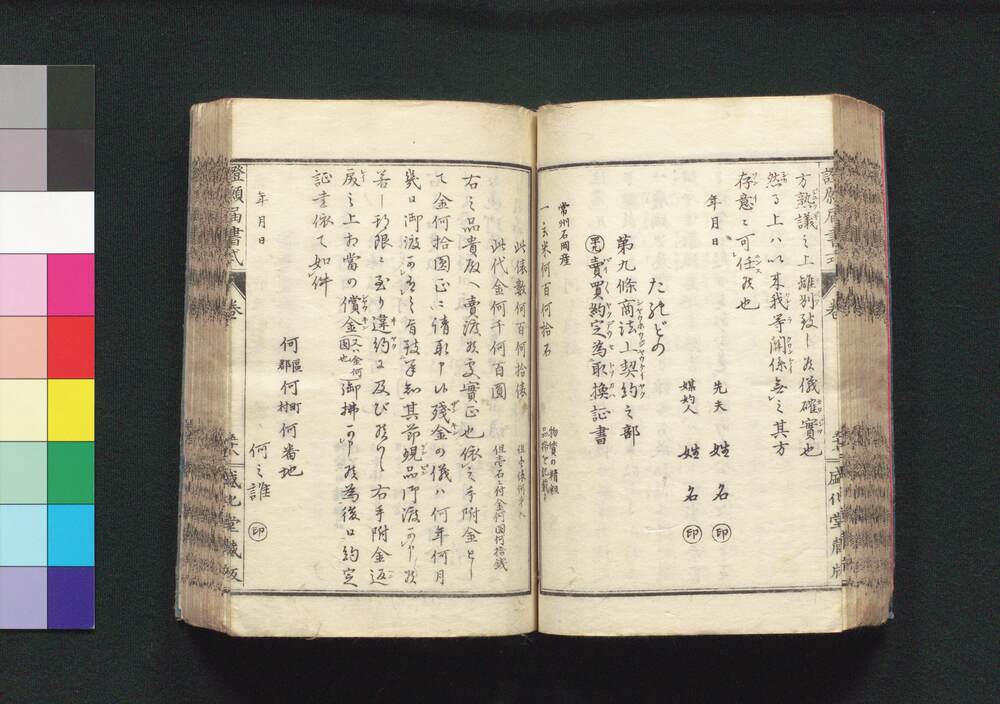 方熟議之上離別致し候儀確實也
然る上ハ以来我等関係無之其方
存意に可任候也
年月日
先夫 姓名 印
媒妁人 姓名 印
たれどの
第九條商法上契約之部
賣買約定為取換証書
常州石岡産
一玄米何百何拾石
此俵數何百何拾俵
此代金何千何百圓
但壱石ニ付金何圓何拾銭
右之品貴殿へ賣渡候処實正也依之手附金として
金何拾圓正に請取申候残金の儀ハ何年何月
幾日御渡可有之旨致承知其節現品御渡可申候
若し期限に至り違約に及び候ハヽ右手附金返
戻之上相當の償金又ハ金何圓也御拂可申候為後日約定
証書依て如件
年月日
何區郡何町村何番地
何之誰 印
證願届書式 巻
盛化堂蔵版